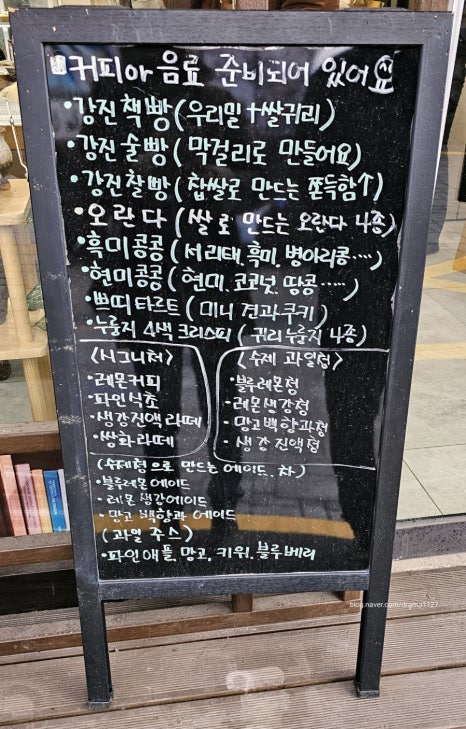 커피or 음료 준비되어 있어요
•강진 책빵(우리밀+쌀귀리)
•강진술빵(막걸리로 만들어요)
•강진찰빵(찹쌀로 만드는 쫀득함↑)
•오란다(쌀로 만드는 오란다 4종)
•흑미콩콩(서리태, 흑미, 병아리콩…)
•현미콩콩(현미, 코코넛, 땅콩……)
•쁘띠타르트(미니 견과쿠키)
•누룽지 4색 크리스피(귀리누룽지 4종)
〈시그니처〉
•레몬커피
•파인식초
•생강진액라떼
•쌍화라떼
〈수제 과일청〉
•블루레몬청
•레몬생강청
•망고백향과청
•생강진액청
(수제청으로 만드는 에이드, 차)
•블루레몬에이드
•레몬생강에이드
•망고백향과에이드
(과일 주스)
•파인애플, 망고, 키위, 블루베리
blog.naver.com/dajma1127